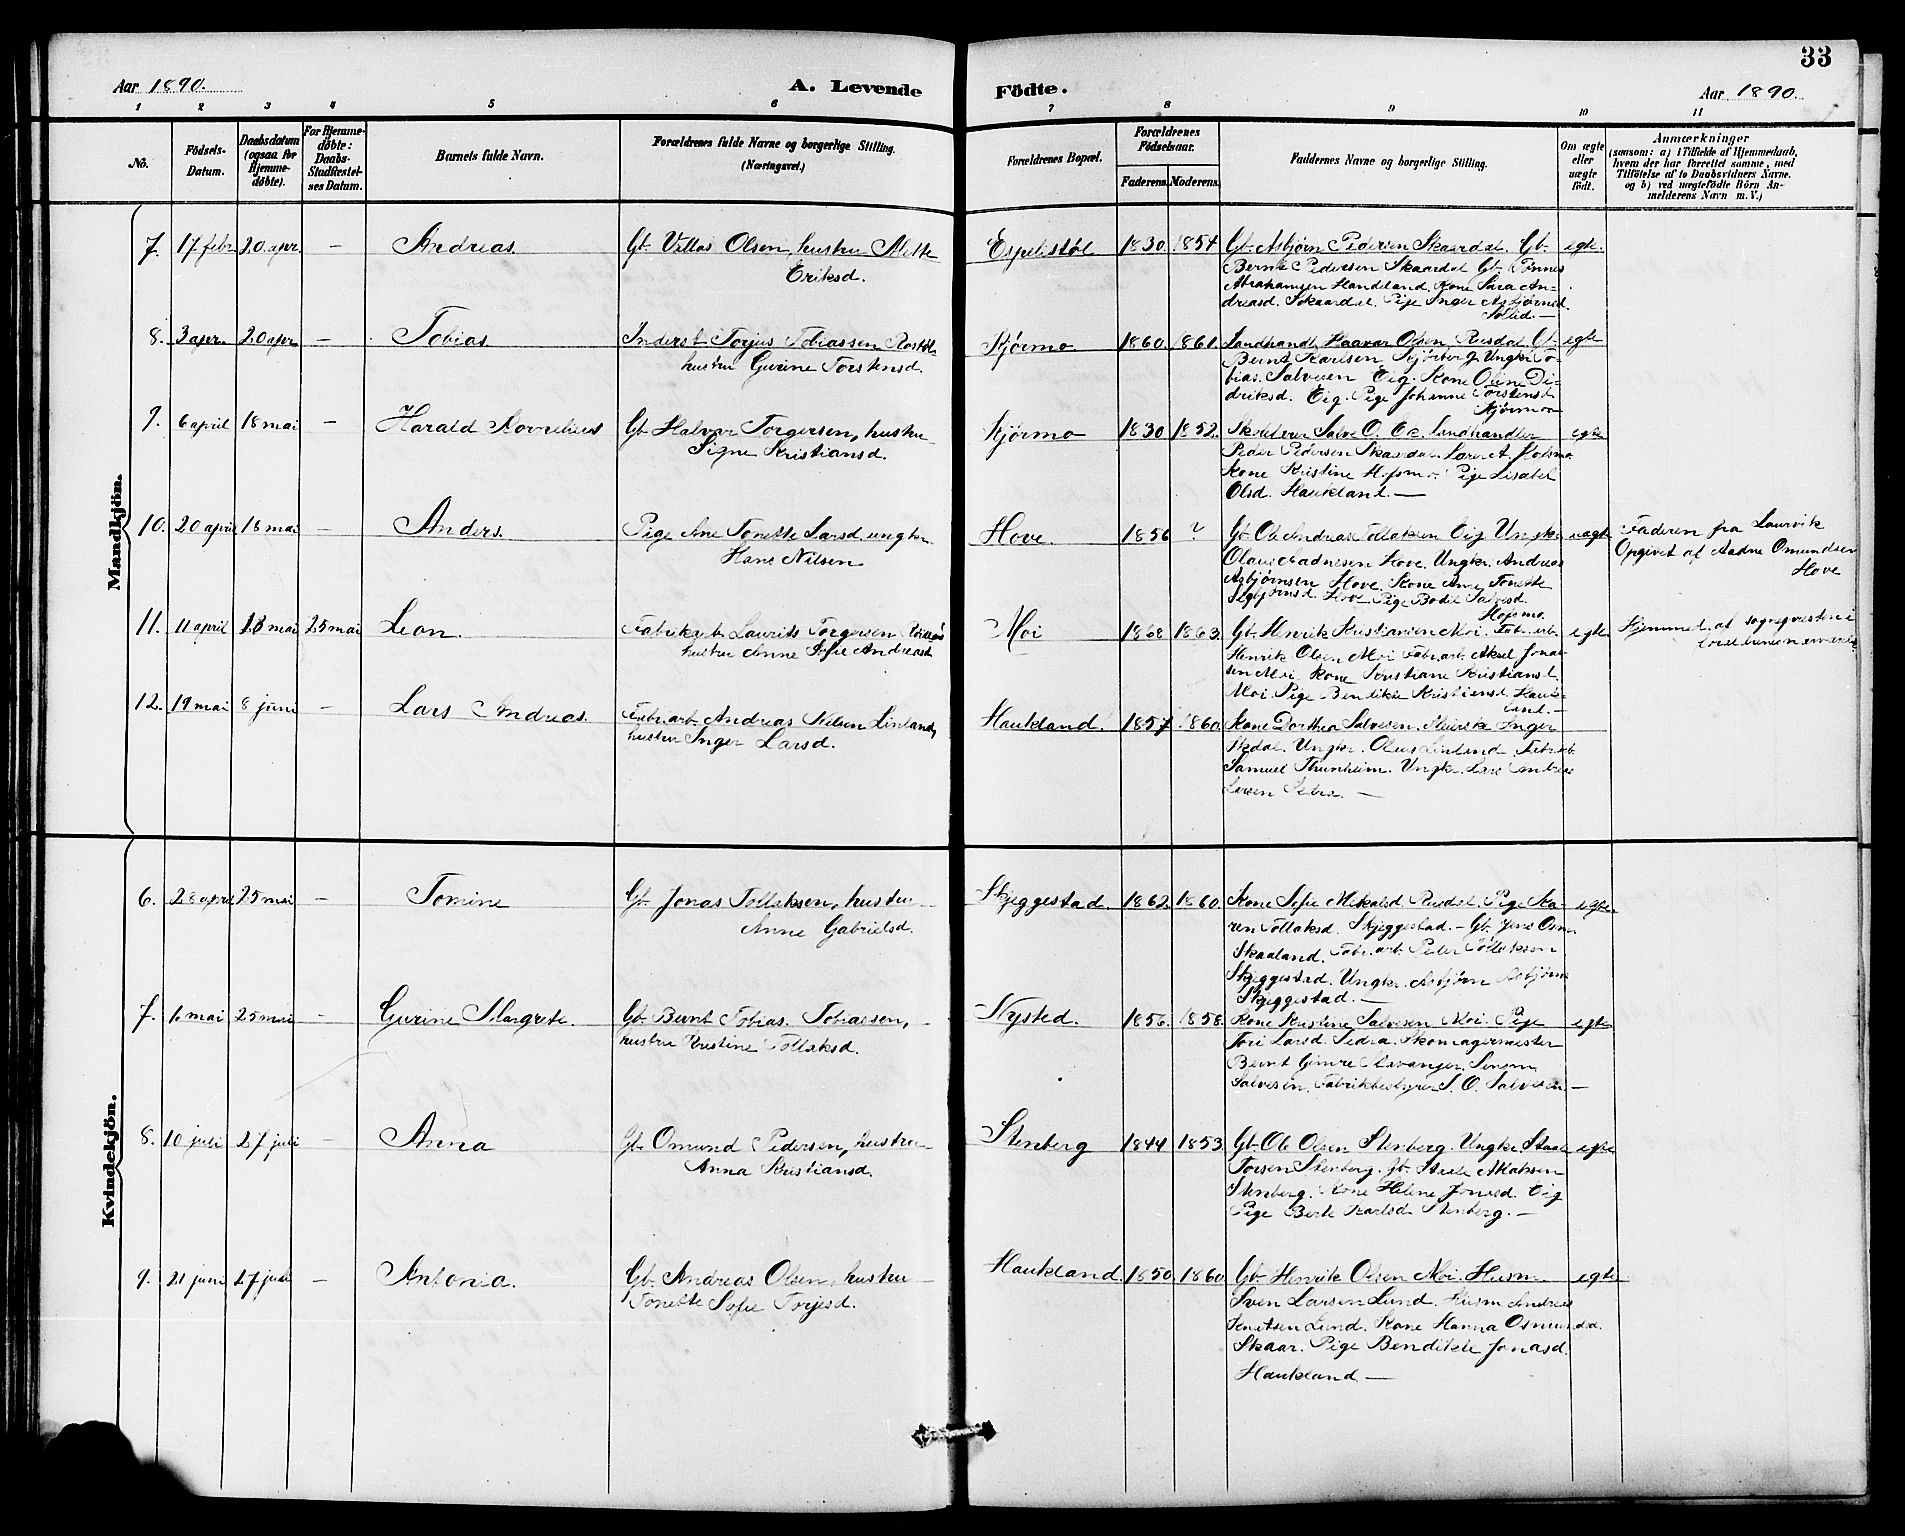 33
Aar 1890.
A. Levende Fødte.
Aar 1890.
1 2 3 4 5 6 7 8 9 10 11
No.
Födsels-Datum.
Daabsdatum (ogsaa for Hjemme-döbte).
For Hjemme-döbte: Daabs-Stadfæstel-ses Datum.
Barnets fulde Navn.
Forældrenes fulde Navne og borgerlige Stilling.
(Næringsvei.)
Forældrenes Bopæl.
Forældrenes Födselsaar.
Faderens. Moderens.
Faddernes Navne og borgerlige Stilling.
Om ægte eller uægte födt.
Anmærkninger
(saasom: a) i Tilfælde af Hjemmedaab,
hvem der har forrettet samme, med
Tilföielse af to Daabsvidners Navne.
og b) ved uægtefödte Börn An-
melderens Navn m. V.)
Mandkjön.
7. 17 febr 20 apr. – Andreas. Gb. Olsen, hustru Mette
Eriksd.
Espelistøl 1830 1854 Gb. Asbjørn Pedersen Skaardal. Gb. egte.
Bernt Pedersen Skaardal Gb. Tønnes
Abrahamsen Handeland. Kone Sara An-
dreasd. Skaardal. Pige Inger Asbjørnsd.
8. 3 apr. 20 apr – Tobias. Inderst Torjus Tobiassen
hustru Gurine Torstensd.
Kjørmo 1860. 1861. Landhandl. Haavar Olsen Rusdal. Gb. egte
Bernt Karlsen Ungkr To-
bias Salvesen Eig. Kone Oline Di-
driksd. Eig. Pige Johanne Torstensd
Kjørmo
9. 6 april 18 mai – Harald Kornelius Gb. Halvor Torgersen, hustru
Signe Kristiansd.
Kjørmo 1830 1852. Salve O. Landhandler egte
Peder Pedersen Skaardal. Hofsmo
Kone Kristine Hofsmo. Pige Lisabet
Olsd. Haukland. –
10. 20 april 18 mai – Anders. Pige Ane Tonette Larsd. ungkr.
Hans Nilsen
Hove. 1856 ? Gb. Ole Andreas Tollaksen Eig Ungkr uægte
Olaus Aadnesen Hove. Ungkr. Andreas
Asbjørnsen Hove. Kone Ane Tonette
Hove Pige Bodil Salvesd.
Hofsmo.
Faderen fra Laurvik
Opgivet af Aadne Omundsen
Hove
11. 11 april 18 mai 25 mai Leon. Fabrikarb. Laurits Torgersen
hustru Anne Sofie Andreasd.
Moi 1868 1863 Gb. Henrik Kristiansen Moi. Fab. arb. egte
Henrik Olsen Moi Fabr. arb. Aksel Jonas-
sen Moi. Kone Kristiane Kristiansd.
Moi. Pige Bendikte Kristiansd. Hauk-
land. –
Hjemmed. af sogneprestens
12. 19 mai 8 juni – Lars Andreas. Fabr. arb. Andreas Nilsen Linland,
hustru Inger Larsd.
Haukland. 1857 1860. Kone Dorthea Salvesen. Inger
Ungkr. Olaus Linland Fabr. arb.
Samuel Thunheim. Ungkr. Lars Andreas
Larsen Sedra. –
Kvindekjön.
6. 28 april 25 mai – Tomine Gb. Jonas Tollaksen, hustru
Anne Gabrielsd.
Skjeggestad 1862. 1860. Kone Sofie Rusdal. Pige Ka- egte.
ren Tollaksd. Skjeggestad. – Gb. Jens
Skaaland. Fabr. arb. Peder Tollaksen
Skjeggestad. Ungkr. Asbjørn Asbjørns
Skjeggestad. –
7. 1. mai 25 mai – Gurine Margrete. Gb. Bernt Tobias Tobiassen,
hustru Kristine Tollaksd.
Nysted. 1856. 1858. Kone Kristine Salvesen Moi. Pige egte
Tori Larsd. Sedra. Skomagermester
Bernt Gimre Stavanger.
Salvesen. Fabrikbestyrer S. O. Salvesen –
8. 10 juli 27 juli – Anna Gb. Omund Pedersen, hustru
Anna Kristiansd.
Stenberg 1844 1853. Gb. Ole Olsen Stenberg. Ungkr. Staale egte
Torsen Stenberg. Gb. Staale
Stenberg. Kone Helene Jonasd. Eig
Pige Berte Karlsd Stenberg. –
9. 21 juni 27 juli – Antonia. Gb. Andreas Olsen, hustru
Tonette Sofie Torjesd.
Haukland 1850 1860 Gb. Henrik Olsen Moi. Husm. egte
Sven Larsen Lund. Husm Andreas
Knutsen Lund. Kone Hanna Osmundsd.
Skaar. Pige Bendikte Jonasd.
Haukland –